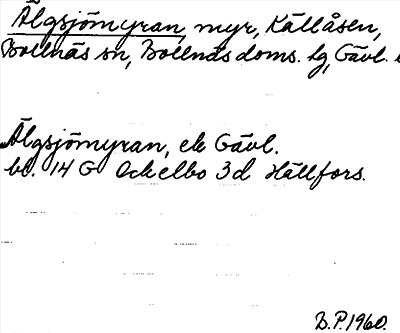 Älgsjömyran, myr, Källåsen,
Bollnäs sn, Bollnäs doms. hg, Gävl.
Älgsjömyran, ek Gävl.
bl. 14 G Ockelbo 3d Hällfors.
B.P. 1960.